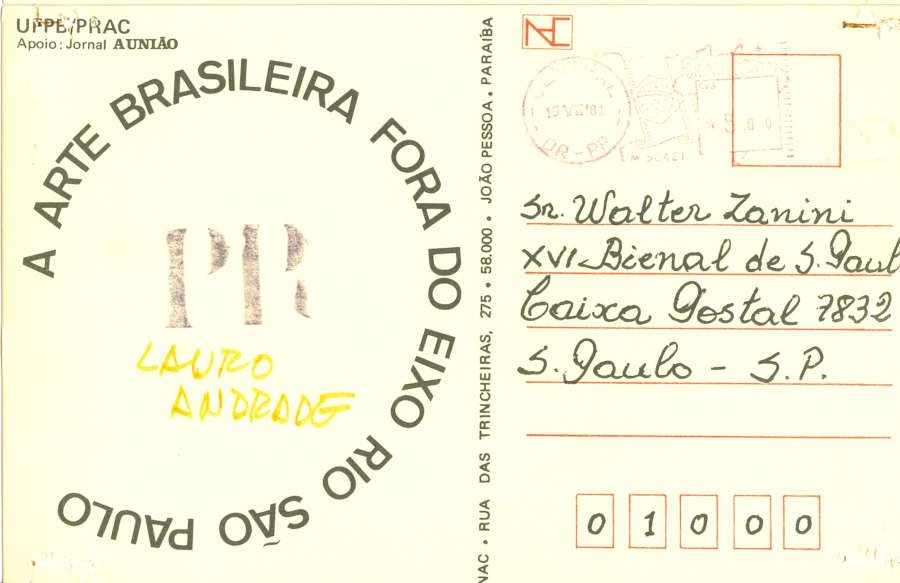 UFPB/PRAC
Apoio: Jornal A UNIÃO
A ARTE BRASILEIRA FORA DO EIXO RIO SÃO PAULO
PR
LAURO
ANDRADE
NAC • RUA DAS TRINCHEIRAS, 275 • 58.000 • JOÃO PESSOA • PARAIBA
DR-PR
5,00
Sr. Walter Zanini
XVI-Bienal de S. Paul
Caixa Postal 7832
S. Paulo - S.P.
0 1 0 0 0